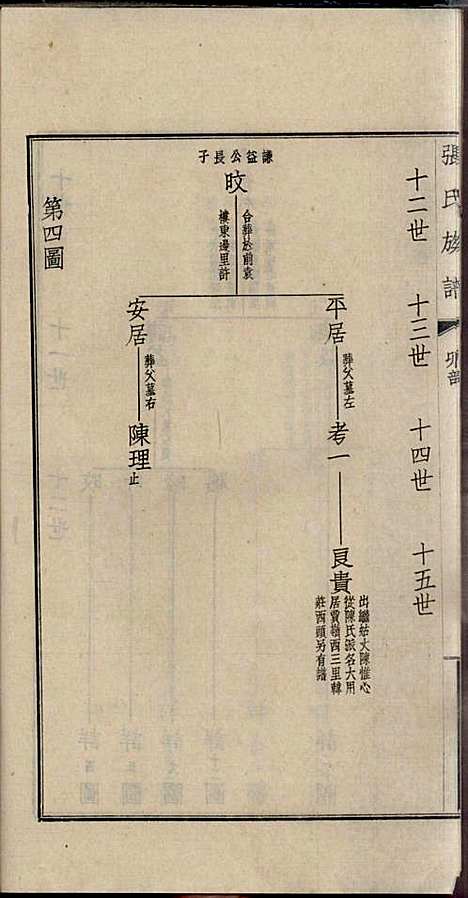 張氏族譜
卯部
十二世
十三世
十四世
十五世
謙益公長子
旼
合葬於前袁
樓東邊里許
平居
葬父墓左
考一
良貴
出繼姑丈陳惟心
從陳氏派名大用
居賈嶺西三里韓
莊西頭另有譜
安居
葬父墓右
陳理
止
第四圖